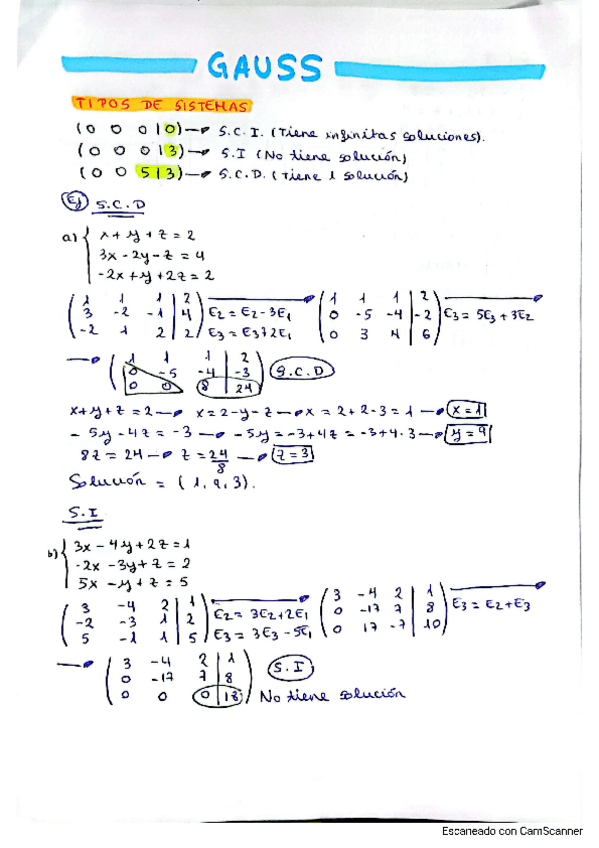 GAUSS
TIPOS DE SISTEMAS
(0 0 0 | 0) → S.C.I. (Tiene infinitas soluciones).
(0 0 0 | 3) → S.I (No tiene solución)
(0 0 5 | 3) → S.C.D. (Tiene 1 solución)
Ej S.C.D
a) { x + y + z = 2
3x - 2y - z = 4
-2x + y + 2z = 2
( 1 1 1 | 2 ) → ( 1 1 1 | 2 )
( 3 -2 -1 | 4 ) E2 = E2 - 3E1 ( 0 -5 -4 | -2 ) E3 = 5E3 + 3E2
( -2 1 2 | 2 ) E3 = E3+2E1 ( 0 3 4 | 6 )
→ ( 1 1 1 | 2 )
( 0 -5 -4 | -3 ) S.C.D
( 0 0 8 | 24 )
x + y + z = 2 → x = 2 - y - z → x = 2 + 2 - 3 = 1 → x = 1
- 5y - 4z = -3 → -5y = -3 + 4z = -3 + 4·3 → y = 9
8z = 24 → z = 24/8 → z = 3
Solución = (1, 9, 3).
S.I
b) { 3x - 4y + 2z = 1
-2x - 3y + z = 2
5x - y + z = 5
( 3 -4 2 | 1 ) → ( 3 -4 2 | 1 ) →
( -2 -3 1 | 2 ) E2 = 3E2 + 2E1 ( 0 -17 7 | 8 ) E3 = E2 + E3
( 5 -1 1 | 5 ) E3 = 3E3 - 5E1 ( 0 17 -7 | 10 )
→ ( 3 -4 2 | 1 ) S.I
( 0 -17 7 | 8 )
( 0 0 0 | 18 ) No tiene solución
Escaneado con CamScanner